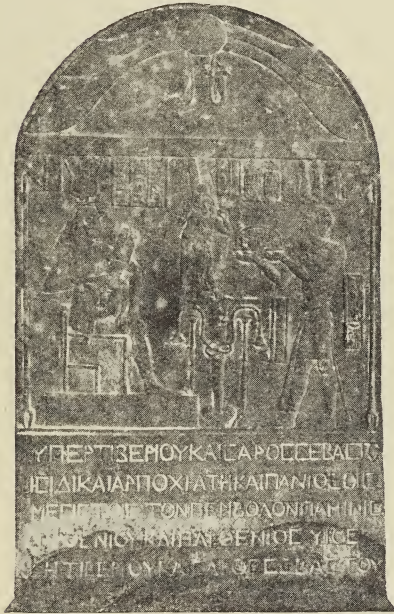 ΥΠΕΡΤΙΒΕΡΙΟΥΚΑΙΣΑΡΟΣΣΕΒΑΣΤΟ
ΙΣΙΔΙΚΑΙΑΡΠΟΧΡΑΤΗΚΑΙΠΑΝΙΘΕΟΙΣ
ΜΕΓΙΣΤΟΙΣΤΟΝΠΕΡΙΒΟΛΟΝΠΑΜΙΝΙΣ
ΘΕΝΙΟΥΚΑΙΠΑΡΘΕΝΙΟΣΥΙΟΣ
ΤΙΒΕΡΙΟΥΚΑΙΣΑΡΟΣΣΕΒΑΣΤΟΥ